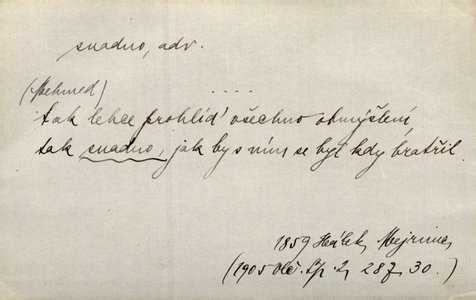 snadno, adv.
(Mehmed) ....
tak lehce prohlíd' všechno obmýšlení,
tak snadno, jak bys ním se byl kdy bratřil.
1859 Hálek, Mejrima,
(1905 Ott. Sp. 2, 287, 30.)